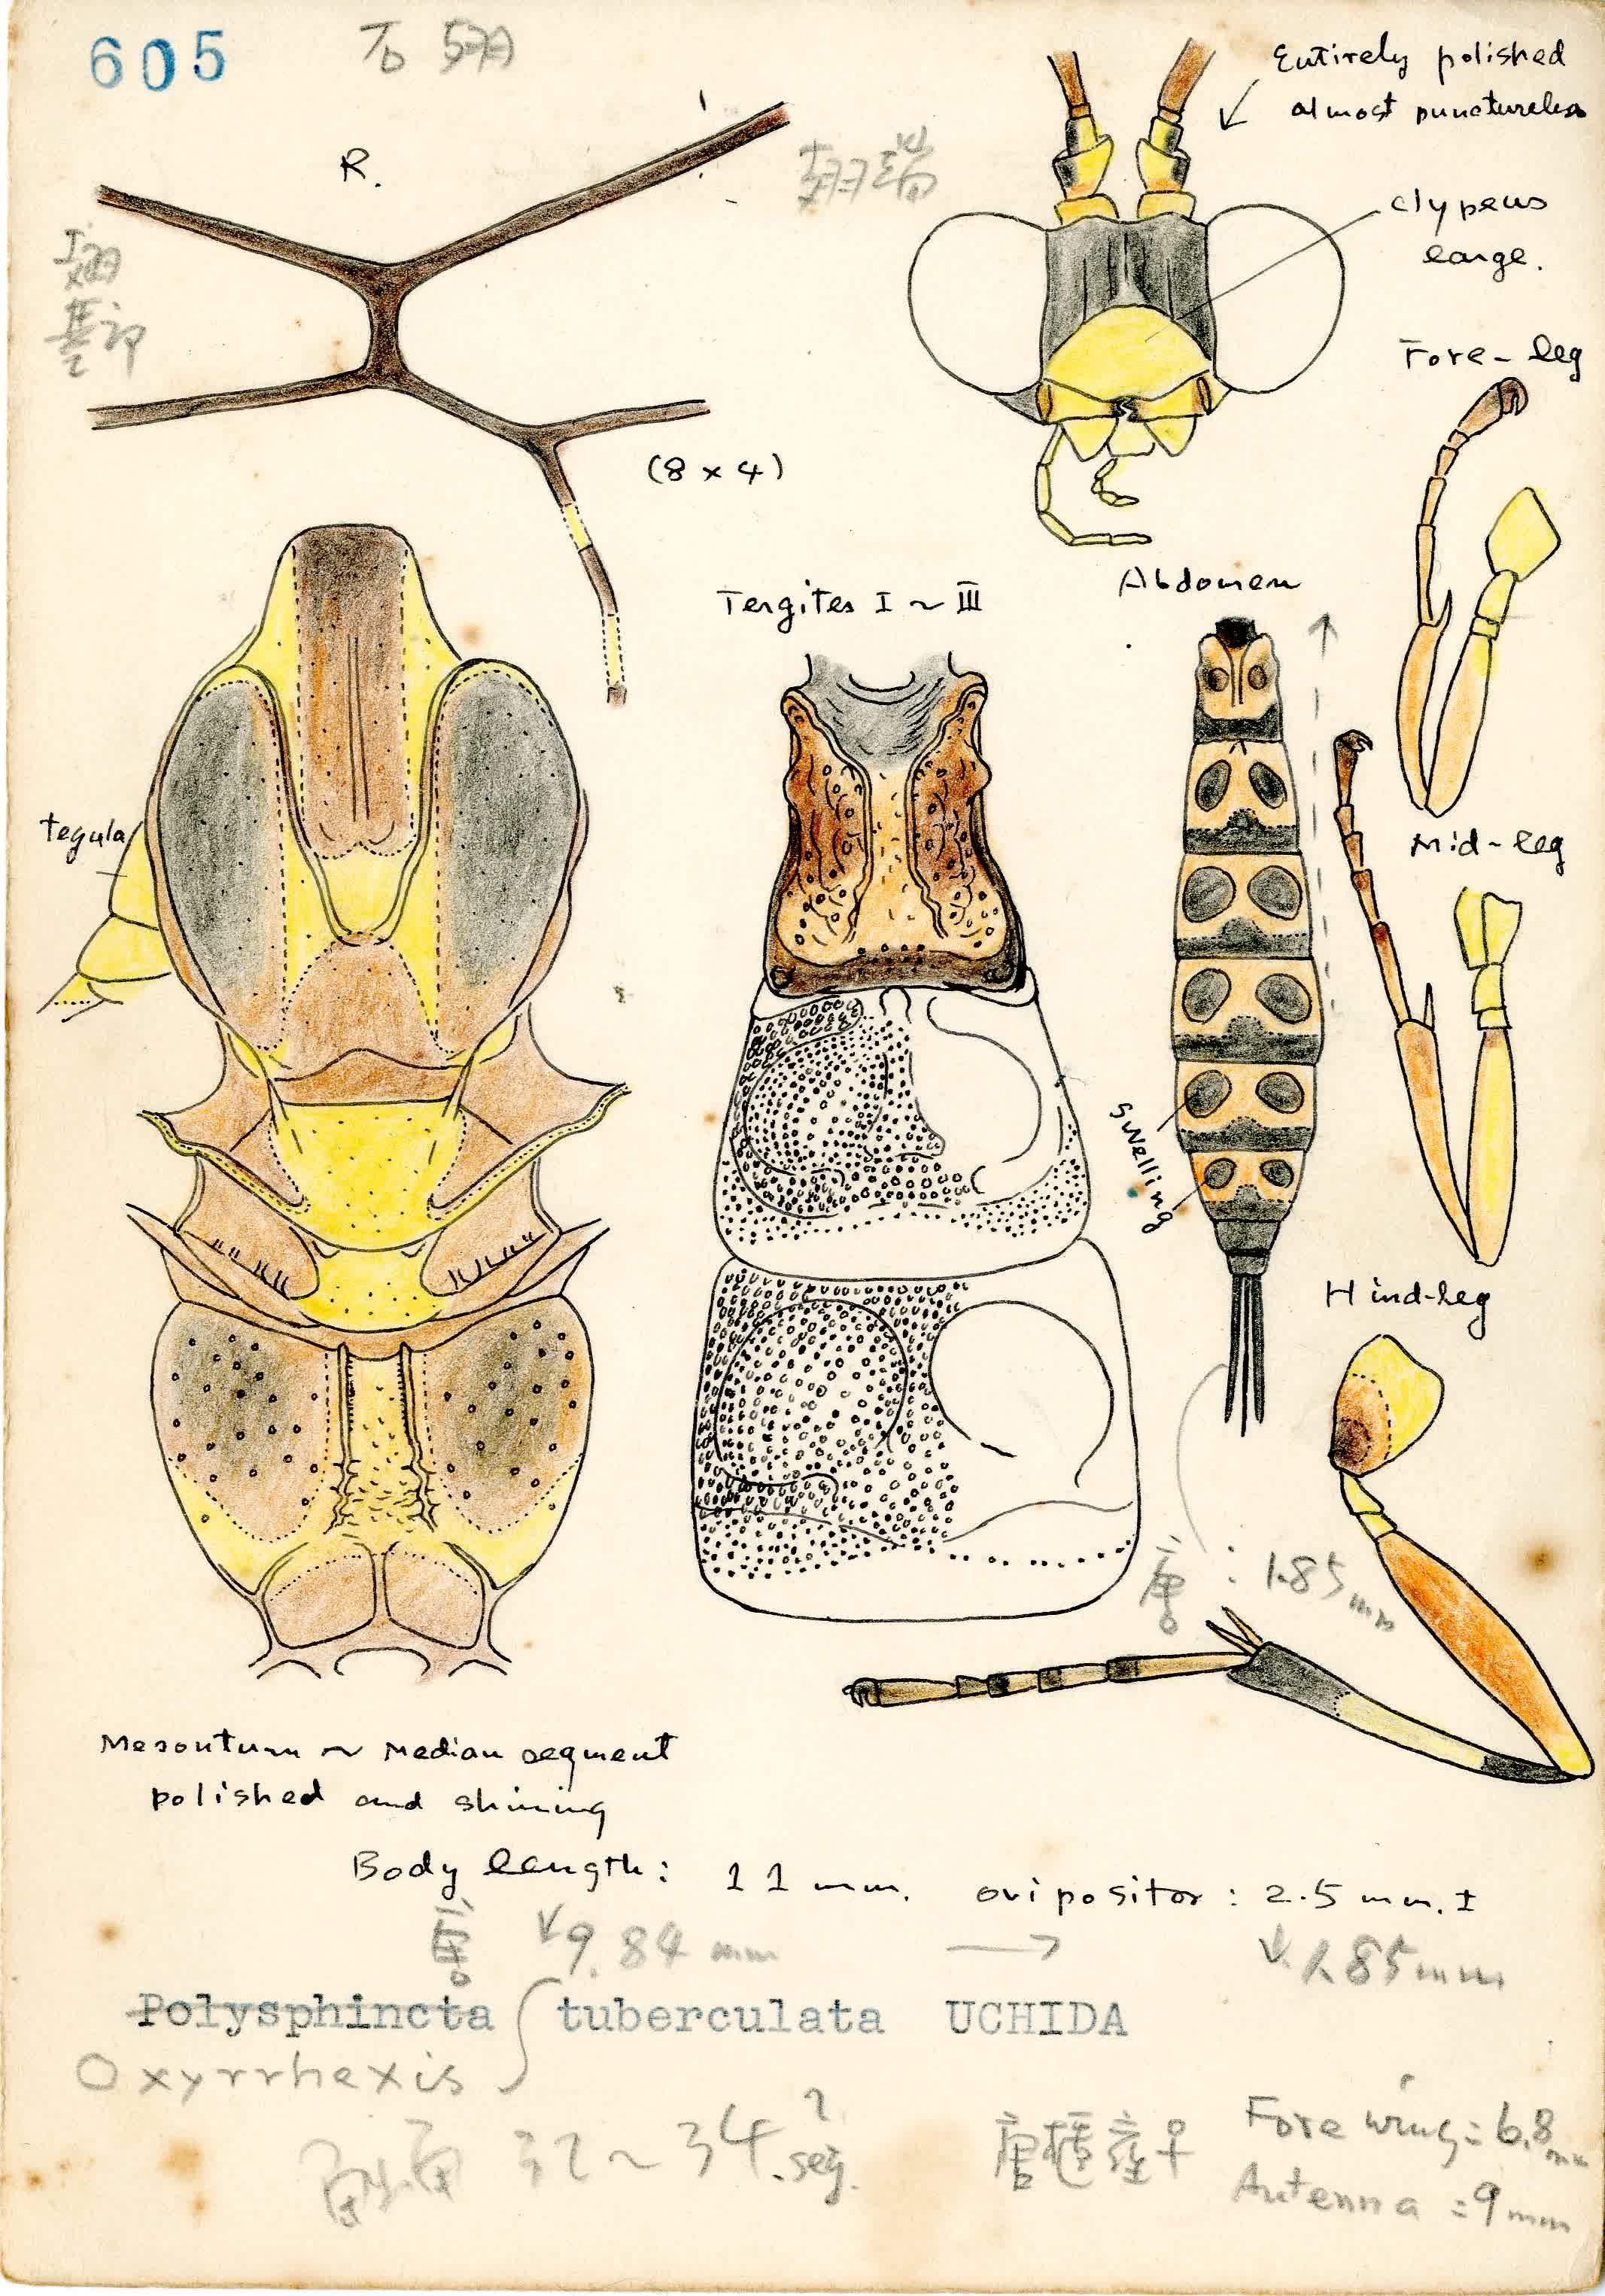 605
右翅
R.
翅端
翅
基部
(8 x 4)
Entirely polished
almost punctureless
clypeus
large.
Fore-leg
Tergites I ~ III
Abdomen
tegula
Mid-leg
Swelling
Hind-leg
唐: 1.85 mm
Mesonutum ~ Median segment
polished and shining
Body length: 11 mm. ovipositor: 2.5 mm. I
唐 9.84 mm → 1.85 mm
Polysphincta tuberculata UCHIDA
Oxyrrhexis
32 ~ 34? seg.
唐櫃産♀
Fore wing = 6.8 mm
Antenna = 9 mm